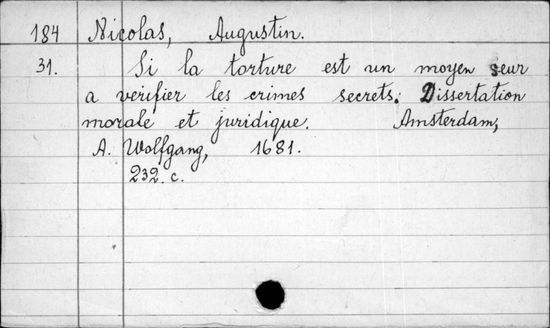 184 Nicolas, Augustin.
31. Si la torture est un moyen seur
a verifier les crimes secrets. Dissertation
morale et juridique. Amsterdam,
A. Wolfgang, 1681.
232. c.